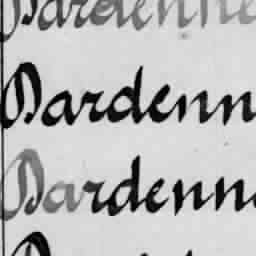 Dardenne
Dardenn
Dardenn